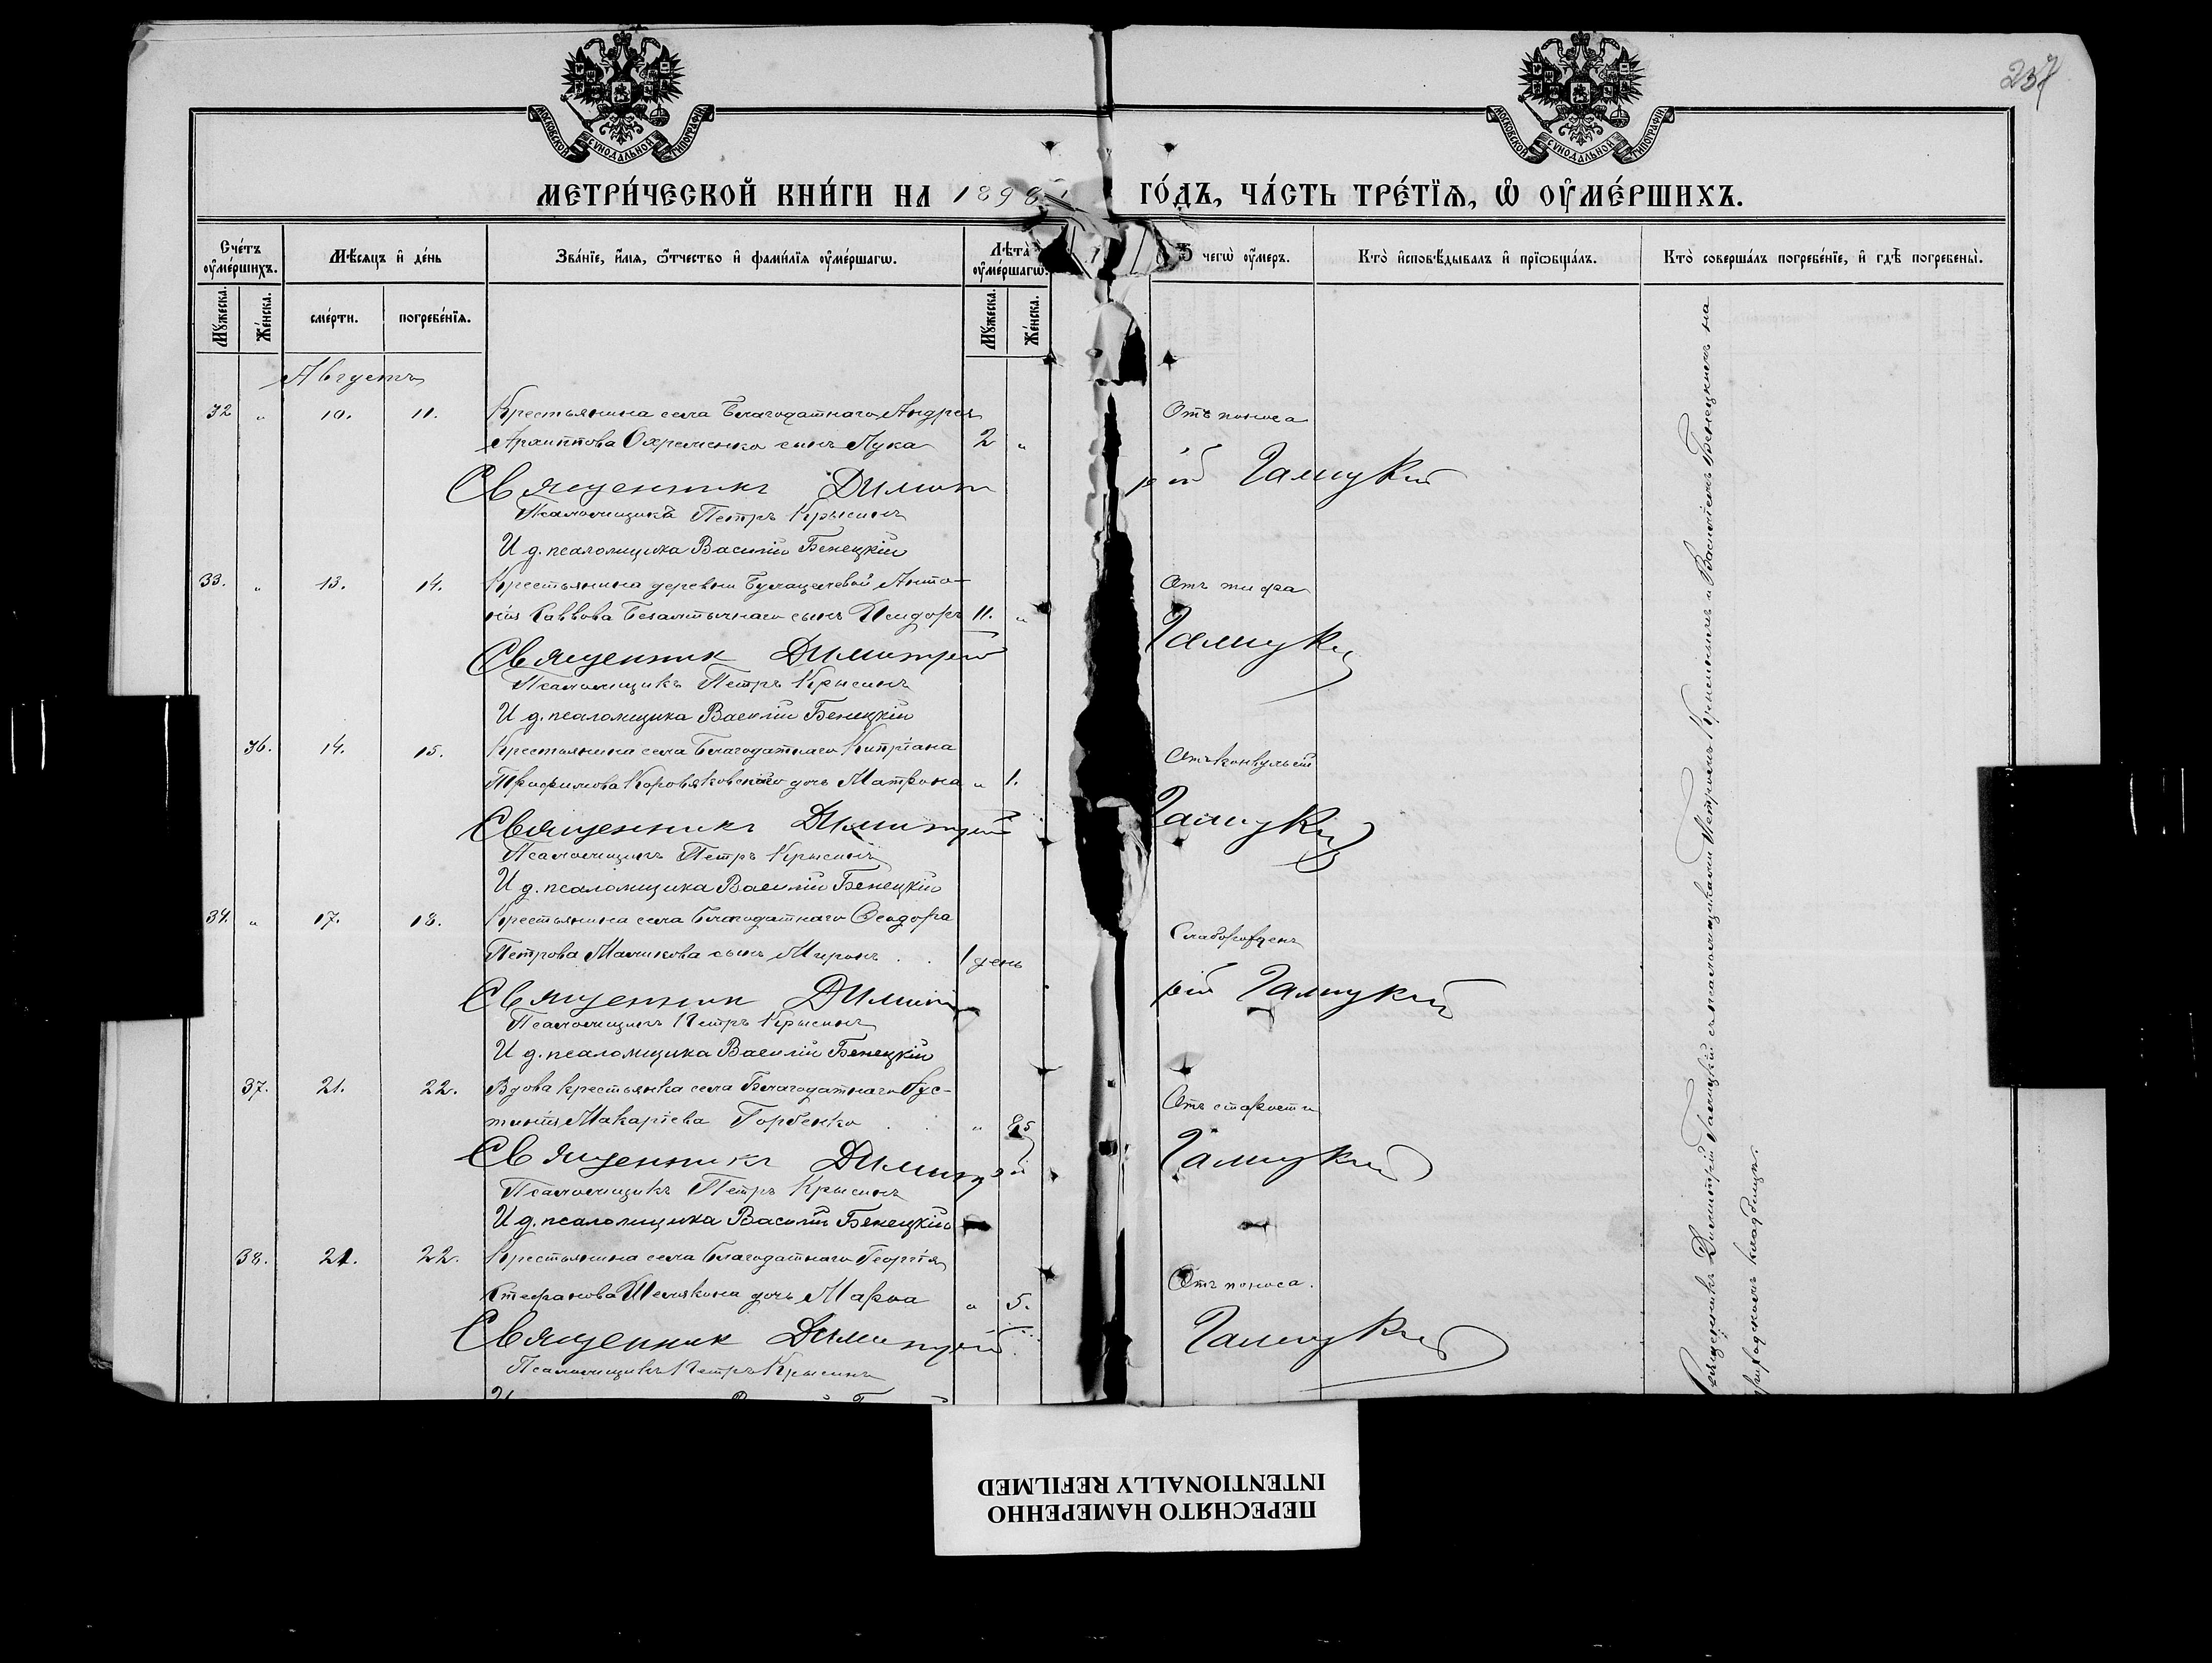 237
МОСКОВСКОЙ СѴНОДАЛЬНОЙ ТИПОГРАФІИ
МОСКОВСКОЙ СѴНОДАЛЬНОЙ ТИПОГРАФІИ
МЕТРИ́ЧЕСКОЙ КНИ́ГИ НА 1898 ГО́ДЪ, ЧА́СТЬ ТРЕ́ТЇѦ, Ѡ҆ ОУ҆МЕ́РШИХЪ.
Счетъ оумершихъ.
Мѣсяцъ и день
Званіе, имя, отчество и фамилія оумершагѡ.
Лѣта оумершагѡ.
Ѿ чегѡ оумеръ.
Кто исповѣдывалъ и пріобщалъ.
Кто совершалъ погребеніе, и гдѣ погребены.
Мужеска.
Женска.
смерти.
погребенія.
Мужеска.
Женска.
Августъ
32 " 10. 11. Крестьянина села Благодатнаго Андрея Отъ поноса
Архиппова Охременко сынъ Лука 2 "
Священникъ Димитрій Галицкій
Псаломщикъ Петръ Крысинъ
И д. псаломщика Василій Бенецкій
33. " 13. 14. Крестьянина деревни Анто- Отъ тифа
нія Саввова сынъ Исидоръ 11. "
Священник Димитрій Галицкій
Псаломщикъ Петръ Крысинъ
И д. псаломщика Василій Бенецкій
36. 14. 15. Крестьянина села Благодатнаго Кипріана Отъ конвульсій
Трифимова Коровяковскаго дочь Матрона " 1.
Священникъ Димитрій Галицкій
Псаломщикъ Петръ Крысинъ
И д. псаломщика Василій Бенецкій
34. " 17. 18. Крестьянина села Благодатнаго Ѳеодора Слаборожденъ
Петрова Маликова сынъ Миронъ . . 1 день
Священник Димитрій Галицкій
Псаломщикъ Петръ Крысинъ
И д. псаломщика Василій Бенецкій
37. 21. 22. Вдова крестьянка села Благодатнаго Іус- Отъ старости
тинія Макаріева Горбенко . . " 85
Священникъ Димитрій Галицкій
Псаломщикъ Петръ Крысинъ
И д. псаломщика Василій Бенецкій
38. 21. 22. Крестьянина села Благодатнаго Георгія Отъ поноса.
Стефанова дочь Марѳа " 5.
Священник Димитрій Галицкій
Псаломщикъ Петръ Крысинъ
Священникъ Димитрій Галицкій съ псаломщиками Петромъ Крысинымъ и Василіемъ Бенецкимъ на
приходскомъ кладбищѣ.
ПЕРЕСНЯТО НАМЕРЕННО
INTENTIONALLY REFILMED